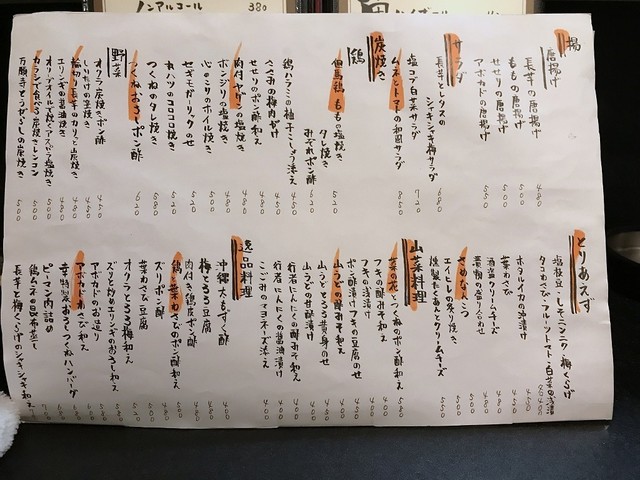 ノンアルコール 380
揚
唐揚げ
長芋の唐揚げ 480
ももの唐揚げ 500
せせりの唐揚げ 500
アボカドの唐揚げ 550
サラダ
長芋とレタスの
シャキシャキ梅サラダ 680
塩コブ白菜サラダ 720
ムネとトマトの和風サラダ 850
炭焼き
鶏
但馬鶏ももの塩焼き 520
タレ焼き
みぞれポン酢 620
鶏ハラミの柚子こしょう添え 450
ささみの梅肉がけ 450
せせりのポン酢和え 480
肉付ヤゲンの塩焼き 480
ボンジリの塩焼き 480
心のこりのホイル焼き 500
セギモガーリックのせ 520
丸ハツのコロコロ焼き 520
つくねのタレ焼き 580
つくねおろしポン酢 620
野菜
オクラ炭焼きポン酢 450
しいたけの炭焼き 450
輪切り長芋のカリッと炭焼き 480
エリンギの醤油焼き 480
オリーブオイルで焼くアスパラ塩焼き 500
カランで食べる炭焼きレンコン 500
万願寺とうがらしの炭焼き 500
とりあえず
塩枝豆・しそニンニク・梅くらげ
タコわさび・フルーツトマト・白菜の浅漬
ホタルイカの沖漬け
葉わさび 450
酒盗クリームチーズ 480
漬物の盛り合わせ 500
さめなんこつ 500
エイヒレの炙り焼き 550
燻製たくあんとクリームチーズ 550
山菜料理
菜の花とつくねのポン酢和え 580
フキの酢みそ和え 400
フキの浅漬け 400
ポン酢漬けフキの豆腐のせ 450
山うどの酢みそ和え 400
山うどとろろ黄身のせ
山うどの甘酢漬け 400
行者にんにくの酢みそ和え 400
行者にんにくの醤油漬け 400
こごみのマヨネーズ添え 400
逸品料理
沖縄太もずく酢 400
梅とろろ豆腐 480
肉付き鶏皮ポン酢 480
鶏と葉わさびのポン酢和え 480
ズリポン酢 500
葉わさび豆腐 500
オクラとろろ梅和え 520
ズリと炒めエリンギのおろし和え 550
アボカドのお造り
アボカドわさび和え
幸特製おろしつくねハンバーグ
ピーマン肉詰め
鶏ムネの昆布蒸し
長芋と梅くらげのシャキシャキ和え